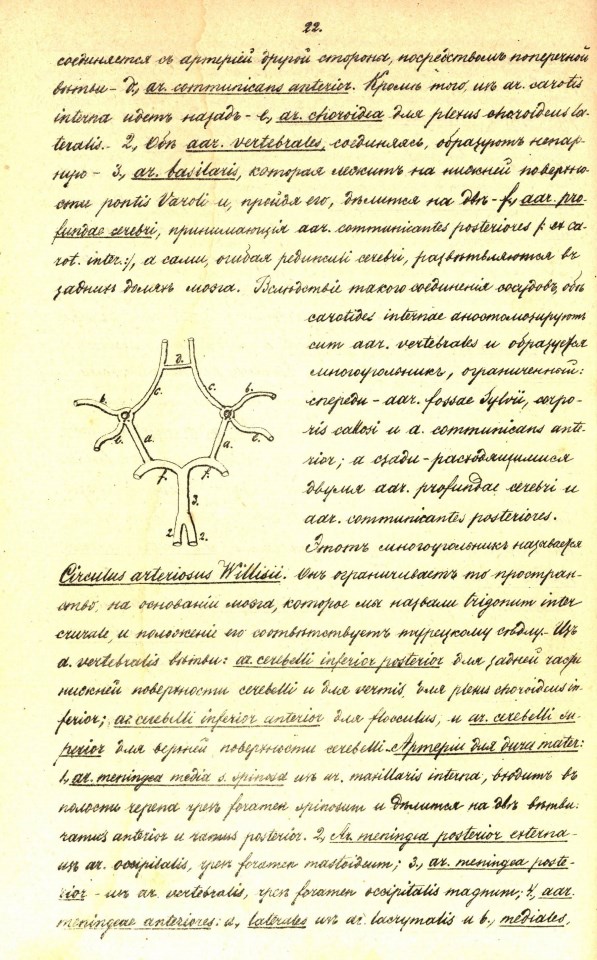 22.
соединяется съ артеріей другой сторона, посредствомъ поперечной
вѣтви – d, ar. communicans anterior. Кромѣ того, изъ ar. carotis
interna идетъ назадъ – e, ar. choroidea для plexus choroideus la-
teralis. – 2, Обѣ aar. vertebrales, соединяясь, образуютъ непар-
ную – 3, ar. basilaris, которая лежитъ на нижней поверхно-
сти pontis Varoli и, пройдя его, дѣлится на двѣ – f, aar. pro-
fundae cerebri, принимающія aar. communicantes posteriores /: ex ca-
rot. inter:/, а сами, огибая pedunculi cerebri, развѣтвляются въ
заднихъ доляхъ мозга. Вслѣдствіе такого соединенія сосудовъ, обѣ
carotides internae анастомозируютъ
cum aar. vertebrales и образуется
многоугольникъ, ограниченный:
спереди – aar. fossae Sylvii, corpo-
ris callosi и a. communicans ante-
rior; а сзади – расходящимися
двумя aar. profundae cerebri и
aar. communicantes posteriores.
Этотъ многоугольникъ называется
d.
c. c.
b. b.
b. b.
a. a.
f. f.
3.
2. 2.
Circulus arteriosus Willisii. Онъ ограничиваетъ то простран-
ство, на основаніи мозга, которое мы назвали trigonum inter
crurale, и положеніе его соотвѣтствуетъ турецкому сѣдлу. – Изъ
a. vertebralis вѣтви: ar. cerebelli inferior posterior для задней части
нижней поверхности cerebelli и для vermis, для plexus choroideus in-
ferior; ar. cerebelli inferior anterior для flocculus, и ar. cerebelli su-
perior для верхней поверхности cerebelli. Артеріи для dura mater:
1, ar. meningea media s. spinosa изъ ar. maxillaris interna, входитъ въ
полость черепа чрезъ foramen spinosum и дѣлится на двѣ вѣтви:
ramus anterior и ramus posterior. 2, Ar. meningea posterior externa –
изъ ar. occipitalis, чрезъ foramen mastoideum; 3, ar. meningea poste-
rior – изъ ar. vertebralis, чрезъ foramen occipitalis magnum; 4, aar.
meningeae anteriores: a., laterales изъ ar. lacrymalis и b., mediales,